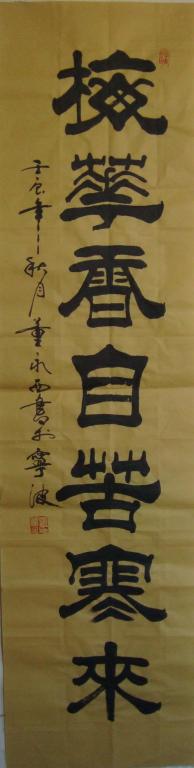 梅華香自苦寒來
壬辰年秋月董永西書於寧波